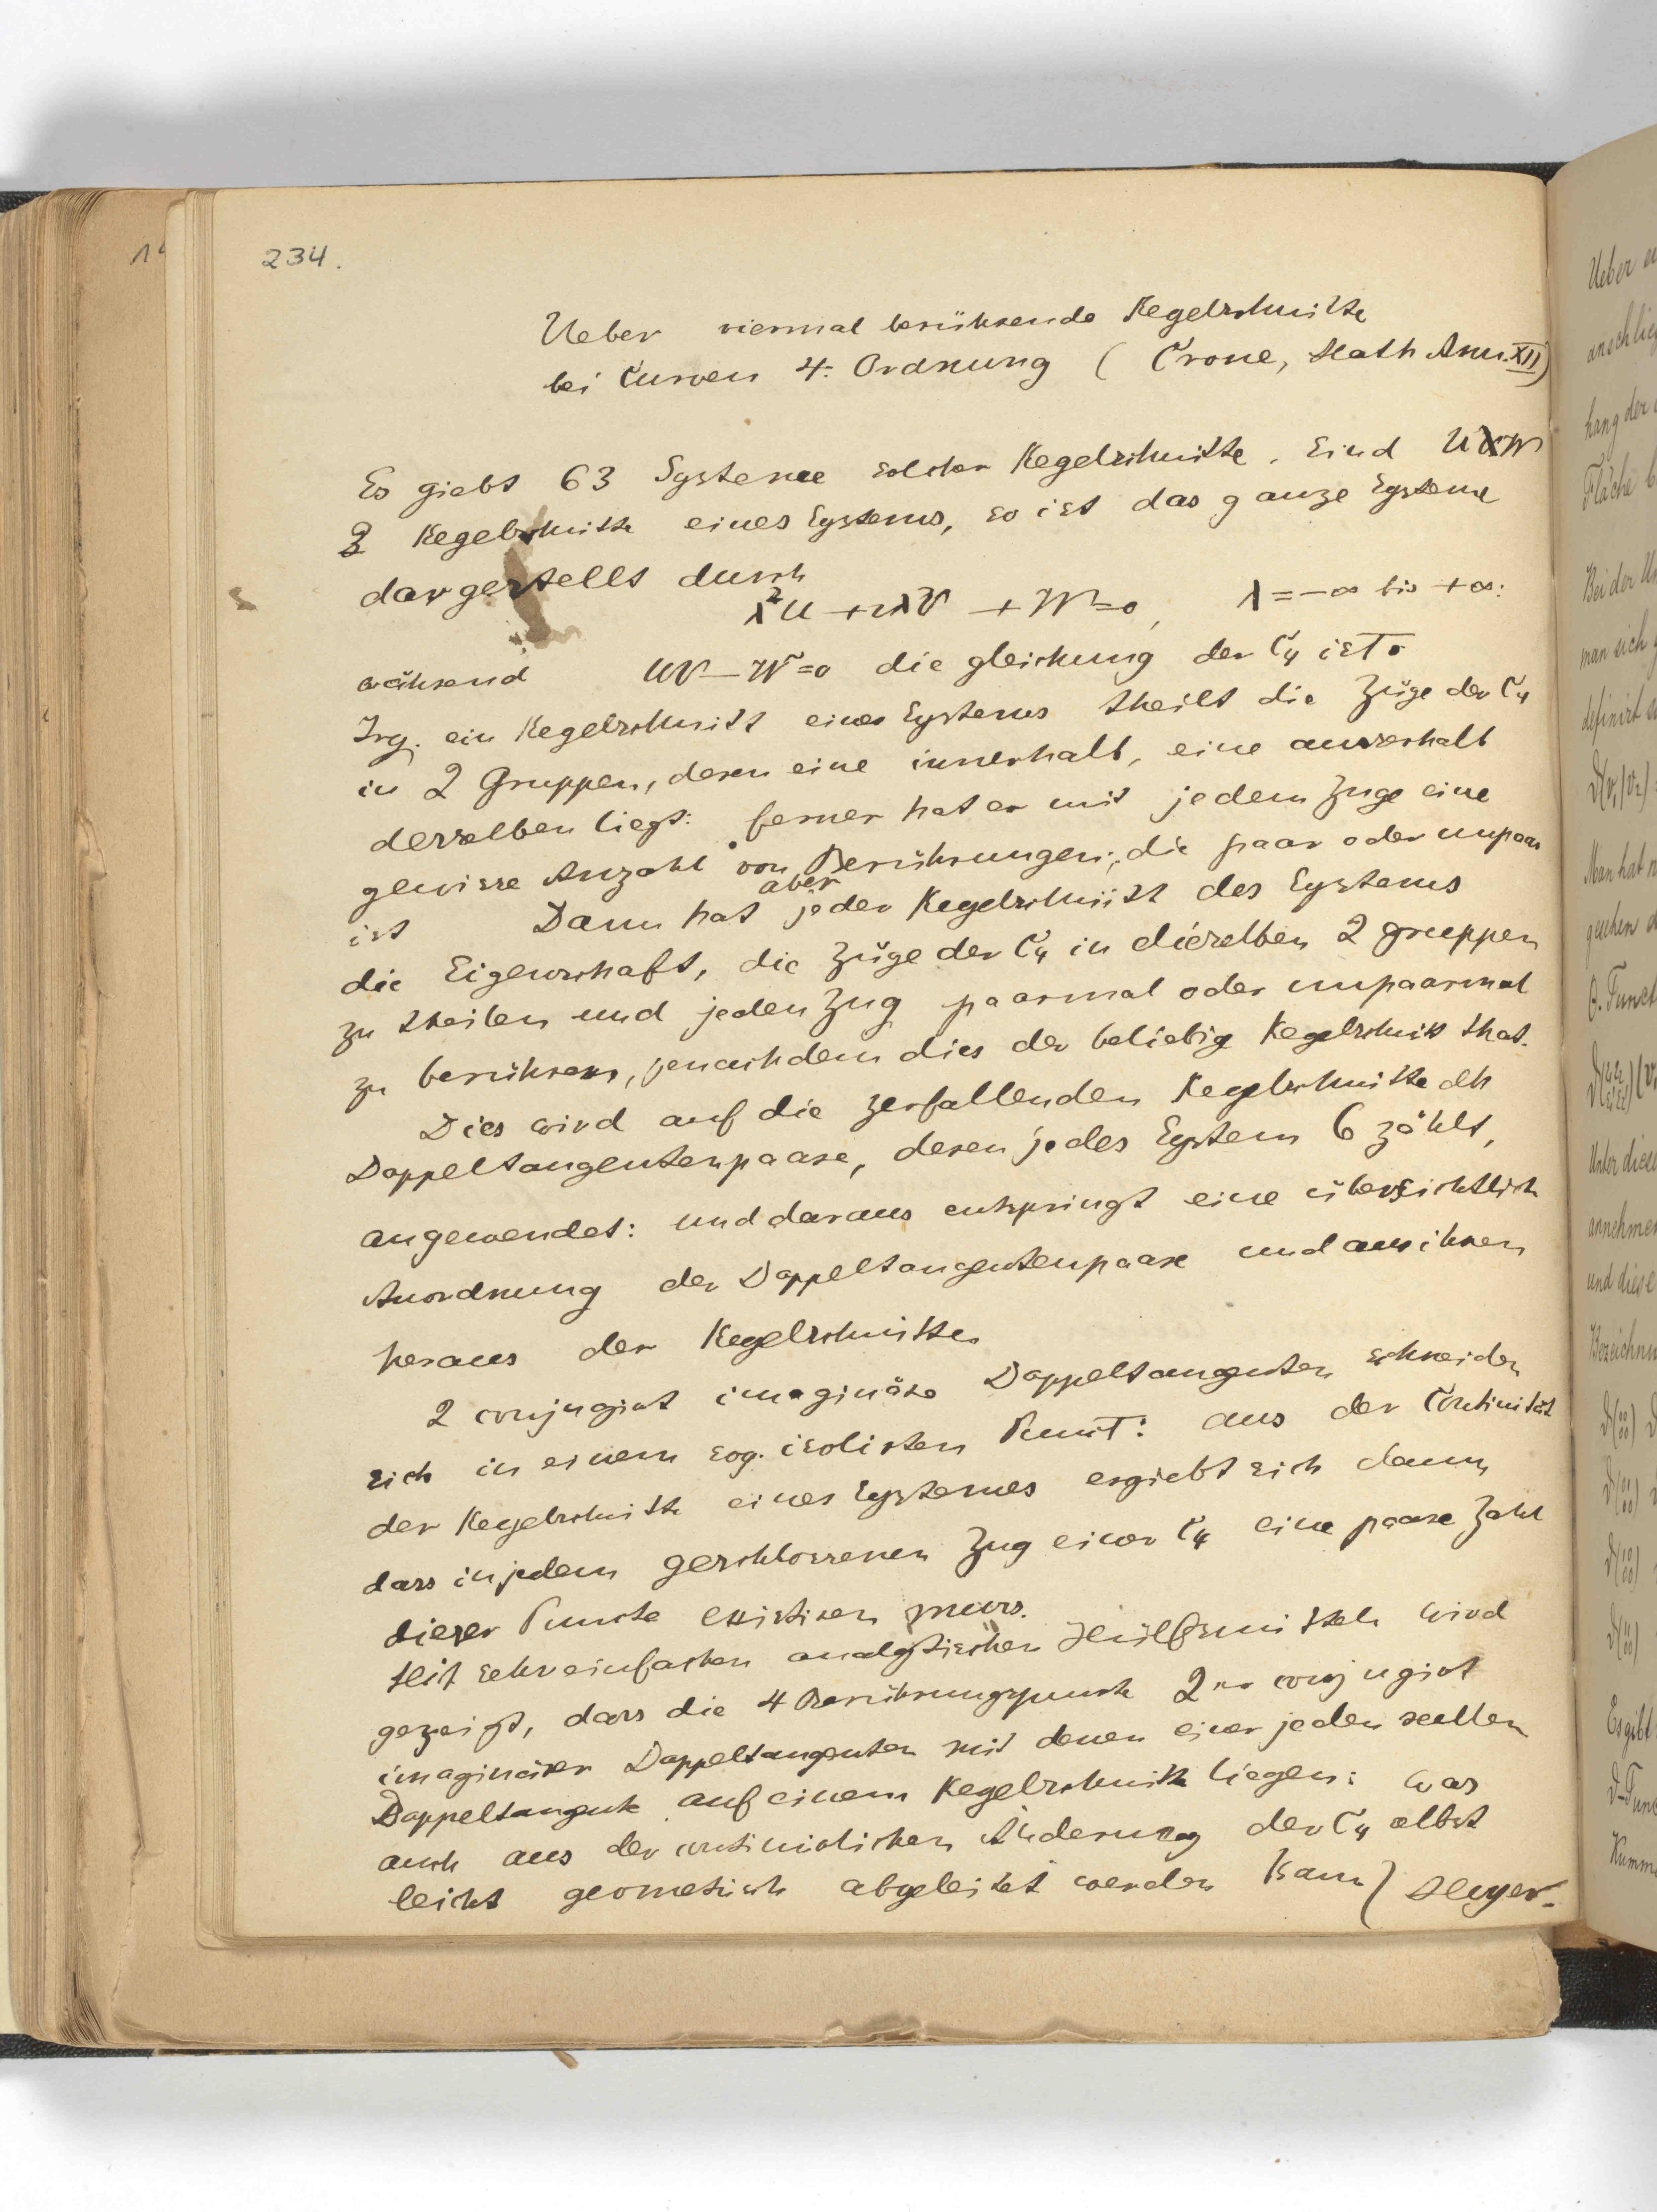 234.
Ueber viermal berührende Kegelschnitte
bei Curven 4. Ordnung ( Crone, Math Ann. XII)
Es giebt 63 Systeme solcher Kegelschnitte. Sind U W
2 Kegelschnitte eines Systems, so ist das ganze System
dargestellt durch
λ²U + 2λV + W = 0, λ = -∞ bis +∞:
während UV - W² = 0 die gleichung der C4 ist.
Irg. ein Kegelschnitt eines Systems theilt die Züge der C4
in 2 Gruppen, deren eine innerhalb, eine ausserhalb
desselben liegt: ferner hat er mit jedem Zuge eine
gewisse Anzahl von Berührungen, die paar oder unpaar
ist Dann hat aber jeder Kegelschnitt des Systems
die Eigenschaft, die Züge der C4 in dieselben 2 gruppen
zu theilen und jeden Zug paarmal oder unpaarmal
zu berühren, jenachdem dies der beliebig Kegelschnitt that.
Dies wird auf die zerfallenden Kegelschnitte dh
Doppeltangentenpaare, deren jedes System 6 zählt,
angewendet: und daraus entspringt eine übersichtlich
Anordnung der Doppeltangentenpaare und aus ihnen
heraus der Kegelschnitte
2 conjugirt imaginäre Doppeltangenten schneiden
sich in einem sog. isolirten Punct: aus der Continität
der Kegelschnitte eines Systemes ergiebt sich dann
dass in jedem geschlossenen Zug einer C4 eine paare Zahl
dieser Puncte existiren muss.
Mit sehr einfachen analytischen Hülfsmitteln wird
gezeigt, dass die 4 Berührungspunkte 2er conjugirt
imaginärer Doppeltangenten mit denen einer jeden reellen
Doppeltangente auf einem Kegelschnitte liegen: was
auch aus der continuirlichen Änderung der C4 elbst
leicht geometrisch abgeleitet werden kann) Meyer.